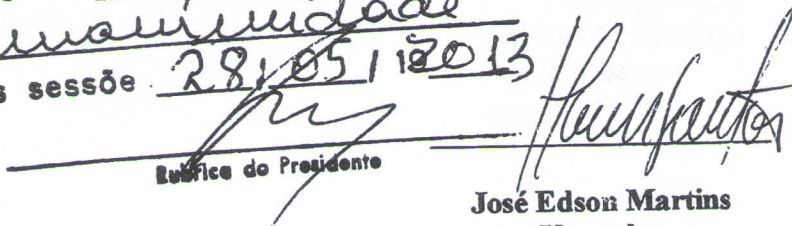 unanimidade
s sessõe 28 / 05 / 2013
Rubfice do Presidente
José Edson Martins